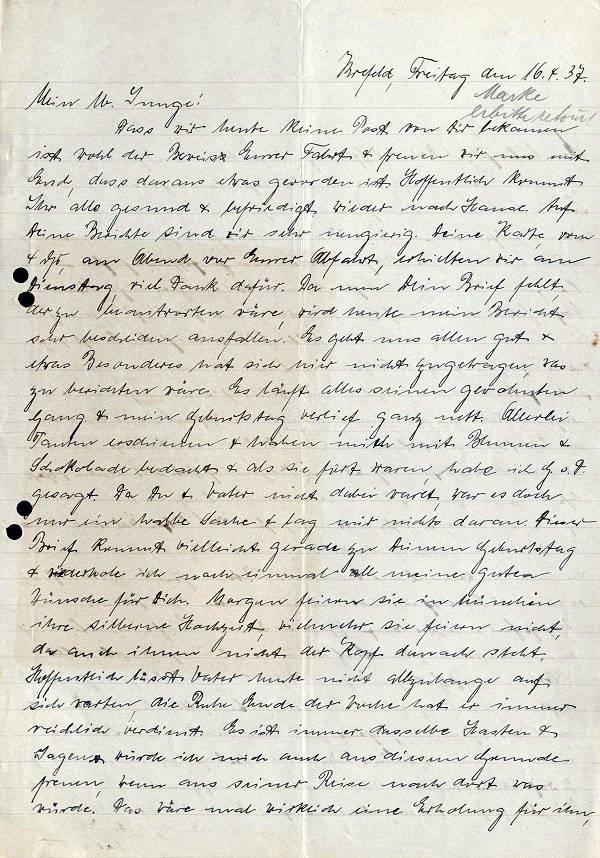 Krefeld, Freitag den 16.4.37.
Marke
erbitte retour!
Mein lb. Junge!
Dass wir heute keine Post von Dir bekamen
ist wohl der Beweis Eurer Fahrt & freuen wir uns mit
Euch, dass daraus etwas geworden ist. Hoffentlich kommt
Ihr alle gesund & befriedigt wieder nach Hause. Auf
Deine Berichte sind wir sehr neugierig. Deine Karte, vom
am Abend vor Eurer Abfahrt, erhielten wir am
Dienstag, viel Dank dafür. Da nun Dein Brief fehlt,
der zu beantworten wäre, wird heute mein Bericht
sehr bescheiden ausfallen. Es geht uns allen gut &
etwas Besonderes hat sich hier nicht zugetragen, was
zu berichten wäre. Es läuft alles seinen gewohnten
Gang & mein Geburtstag verlief ganz nett. Allerlei
Tanten erschienen & haben mich mit Blumen &
Schokolade bedacht & als sie fort waren, habe ich G.s.D.
gesagt. Da Du & Vater nicht dabei wart, war es doch
nur eine halbe Sache & lag mir nichts daran. Dieser
Brief kommt vielleicht gerade zu Deinem Geburtstag
& wiederhole ich noch einmal all meine guten
Wünsche für Dich. Morgen feiern sie in München
ihre silberne Hochzeit, vielmehr sie feiern nicht,
da auch ihnen nicht der Kopf danach steht.
Hoffentlich lässt Vater heute nicht allzulange auf
sich warten, die Ruhe Ende der Woche hat er immer
reichlich verdient. Es ist immer dasselbe Hasten &
Jagen, würde ich mich auch aus diesem Grunde
freuen, wenn aus seiner Reise nach dort was
würde. Das wäre mal wirklich eine Erholung für ihn,